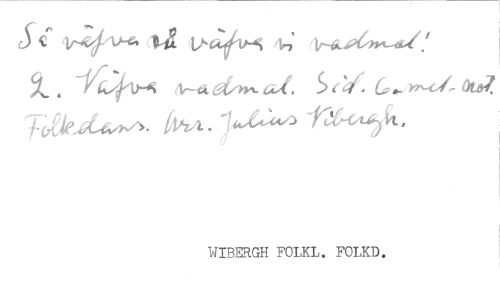 Så väfva så väfva vi vadmal!
2. Väfva vadmal. Sid. 6. mel.-not.
Folkdans. Arr. Julius Vibergh.
WIBERGH FOLKL. FOLKD.